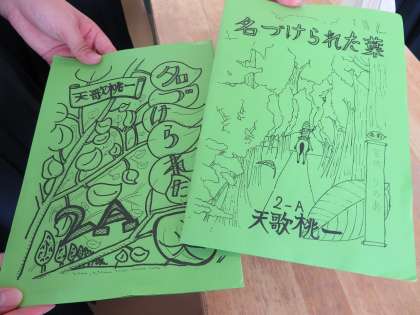 天歌桃一
名づけられた
2A
名づけられた葉
2-A
天歌桃一